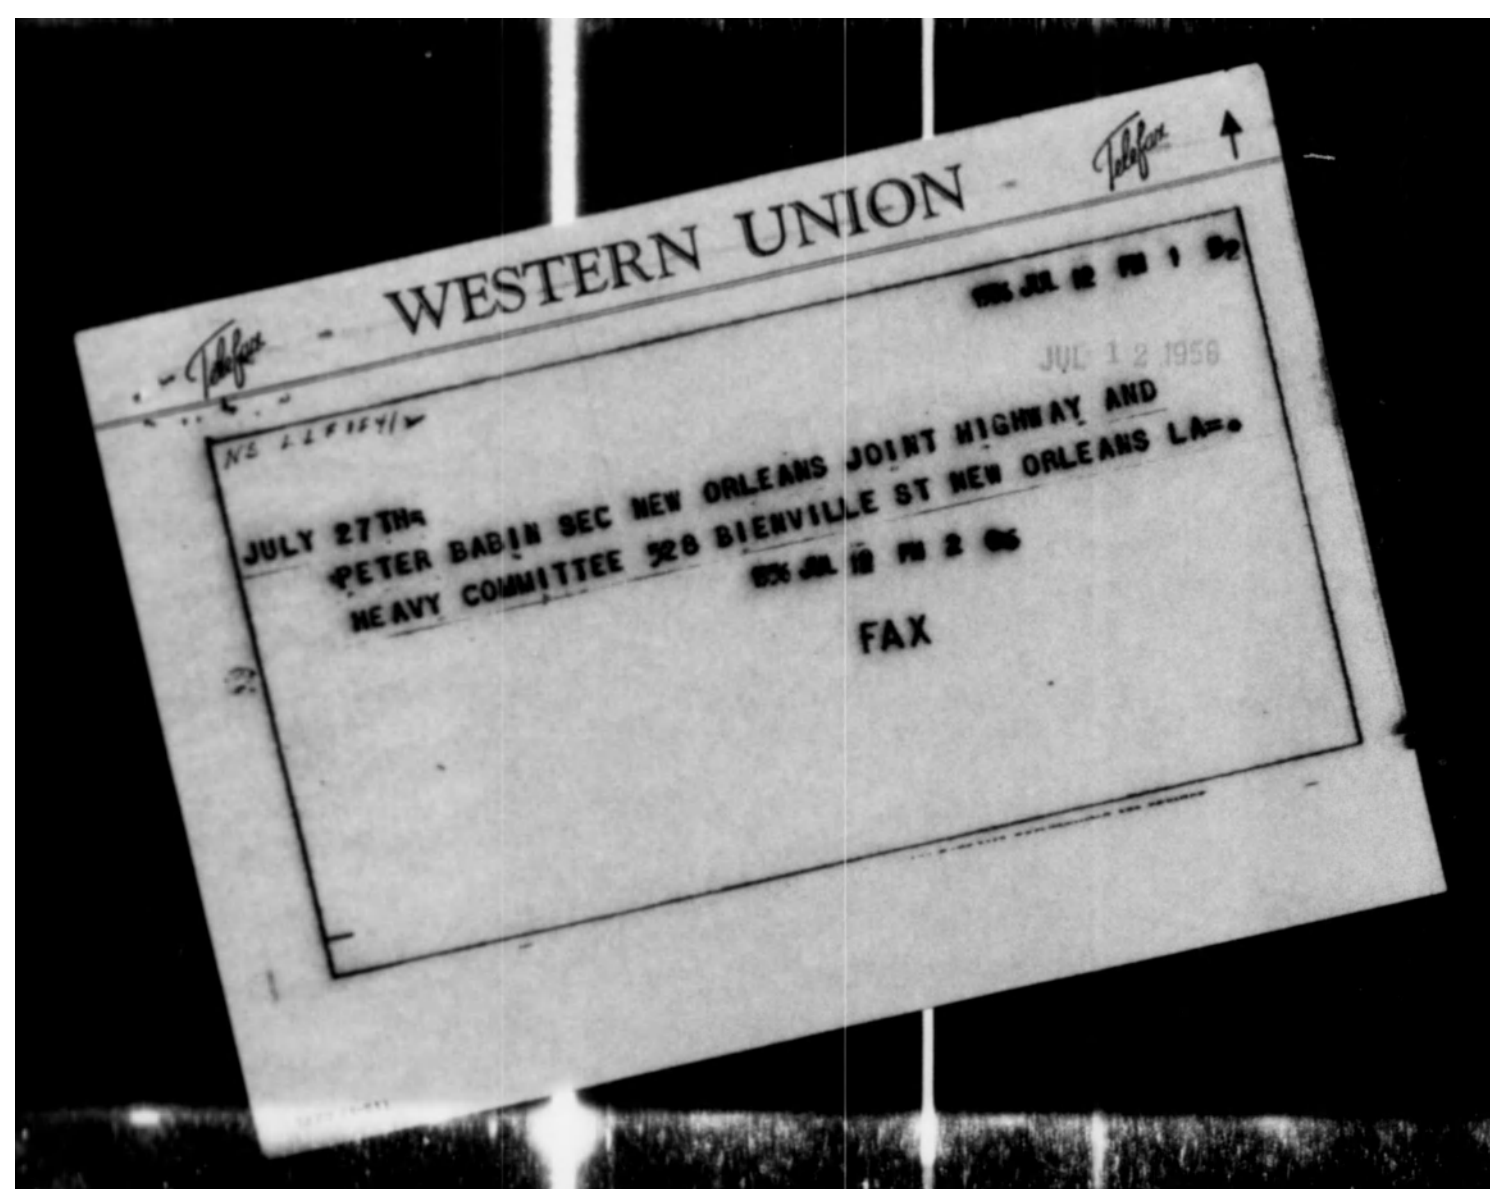 Telefax
WESTERN UNION
Telefax
1956 JUL 12 PM 1
JUL 12 1956
JULY 27TH=
PETER BABIN SEC NEW ORLEANS JOINT HIGHWAY AND
HEAVY COMMITTEE 528 BIENVILLE ST NEW ORLEANS LA=.
1956 JUL 12 PM 2
FAX